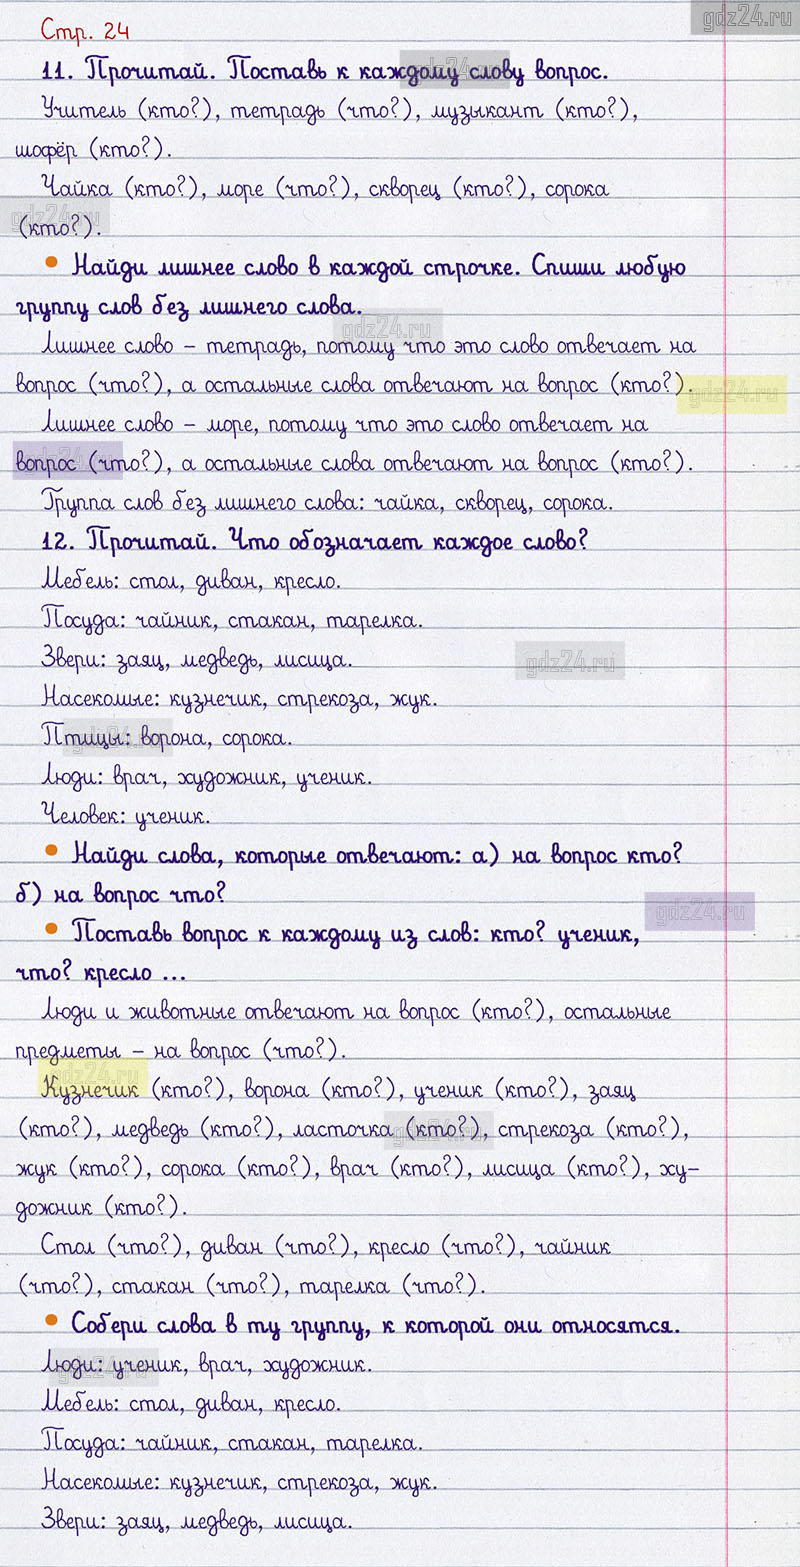 gdz24.ru
Стр. 24
11. Прочитай. Поставь к каждому слову вопрос.
Учитель (кто?), тетрадь (что?), музыкант (кто?),
шофёр (кто?).
Чайка (кто?), море (что?), скворец (кто?), сорока
(кто?).
• Найди лишнее слово в каждой строчке. Спиши любую
группу слов без лишнего слова.
Лишнее слово – тетрадь, потому что это слово отвечает на
вопрос (что?), а остальные слова отвечают на вопрос (кто?).
Лишнее слово – море, потому что это слово отвечает на
вопрос (что?), а остальные слова отвечают на вопрос (кто?).
Группа слов без лишнего слова: чайка, скворец, сорока.
12. Прочитай. Что обозначает каждое слово?
Мебель: стол, диван, кресло.
Посуда: чайник, стакан, тарелка.
Звери: заяц, медведь, лисица.
Насекомые: кузнечик, стрекоза, жук.
Птицы: ворона, сорока.
Люди: врач, художник, ученик.
Человек: ученик.
• Найди слова, которые отвечают: а) на вопрос кто?
б) на вопрос что?
• Поставь вопрос к каждому из слов: кто? ученик,
что? кресло ...
Люди и животные отвечают на вопрос (кто?), остальные
предметы – на вопрос (что?).
Кузнечик (кто?), ворона (кто?), ученик (кто?), заяц
(кто?), медведь (кто?), ласточка (кто?), стрекоза (кто?),
жук (кто?), сорока (кто?), врач (кто?), лисица (кто?), ху-
дожник (кто?).
Стол (что?), диван (что?), кресло (что?), чайник
(что?), стакан (что?), тарелка (что?).
• Собери слова в ту группу, к которой они относятся.
Люди: ученик, врач, художник.
Мебель: стол, диван, кресло.
Посуда: чайник, стакан, тарелка.
Насекомые: кузнечик, стрекоза, жук.
Звери: заяц, медведь, лисица.